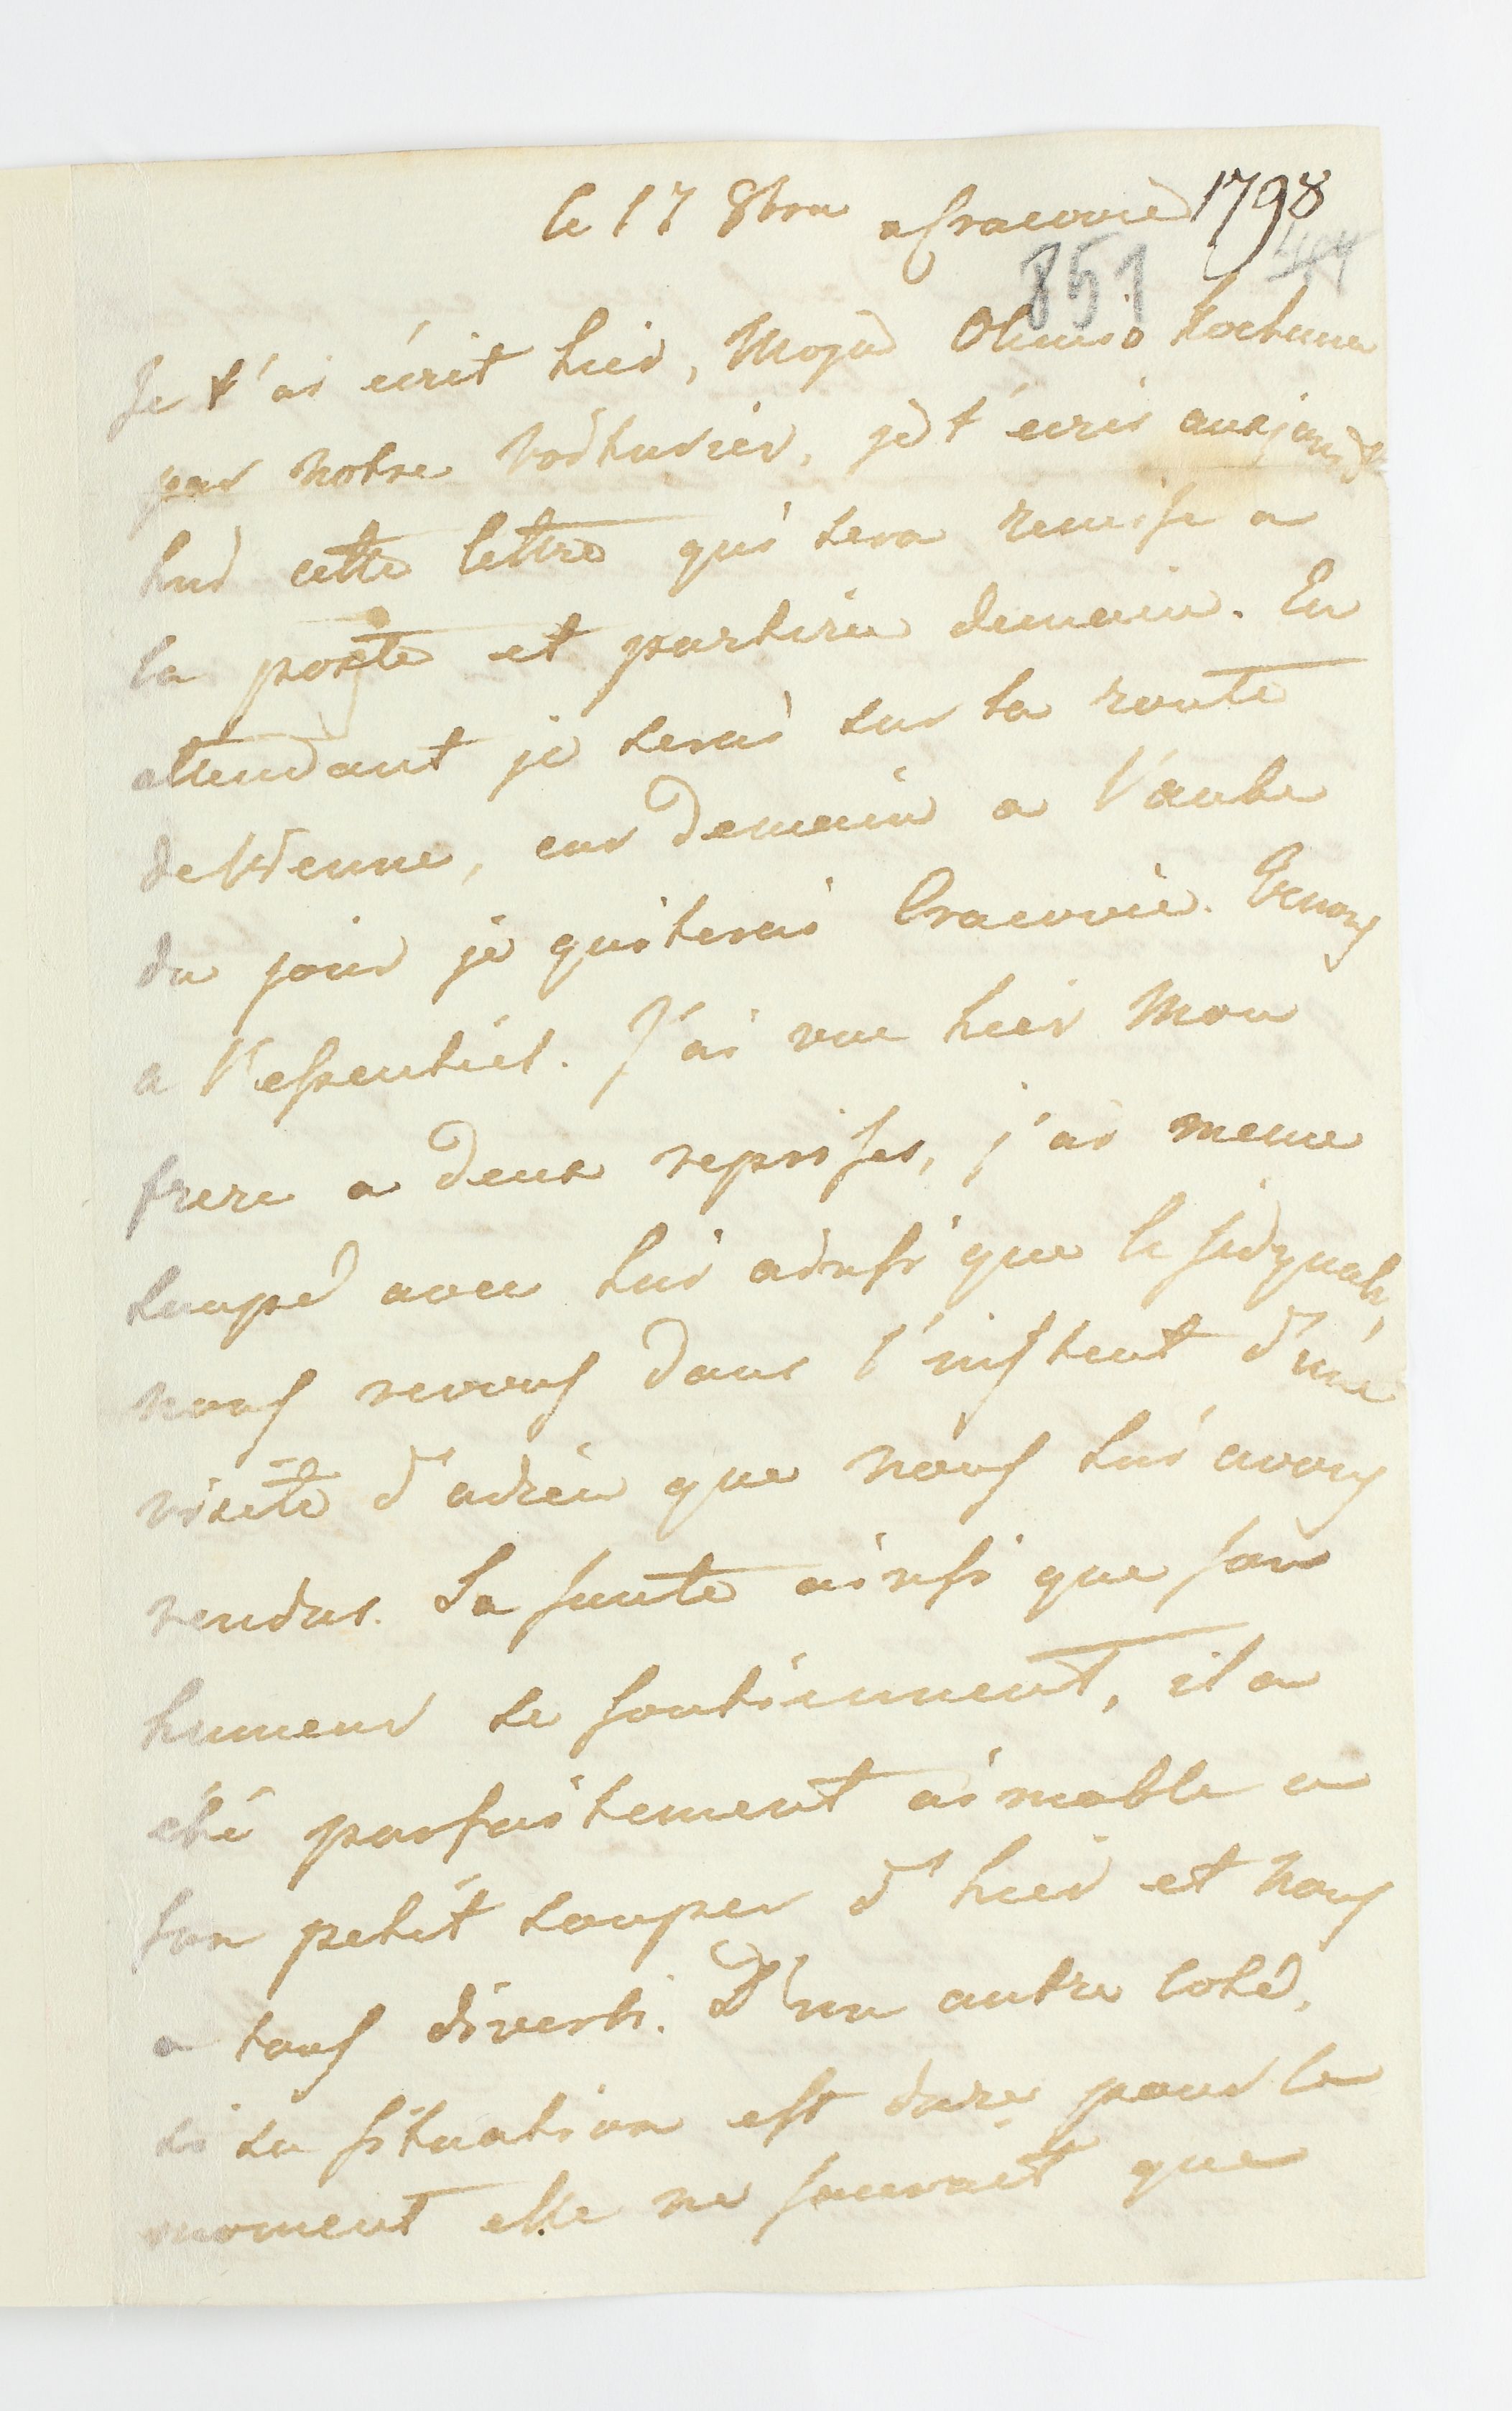 le 17 8bre a Cracovie 1798
851 44
Je t'ai écrit hier, Moja Olesiu kochana
par notre voiturier, je t'écris aujourd
hui cette lettre qui sera remise a
la poste et partira demain. En
attendant je serai sur la route
de Vienne, car demain a l'aube
du jour je quiterai Cracovie. Venons
a l'essentiel. J'ai vue hier mon
frere a deux reprises, j'ai meme
soupé avec lui ainsi que le
nous revenons dans l'instant d'une
visite d'adieu que nous lui avons
rendus. Sa sante ainsi que son
humeur se soutiennent, il a
été parfaitement aimable a
son petit souper d'hier et nous
a tous diverti. D'un autre coté,
si sa situation est dure pour le
moment elle ne sauroit que